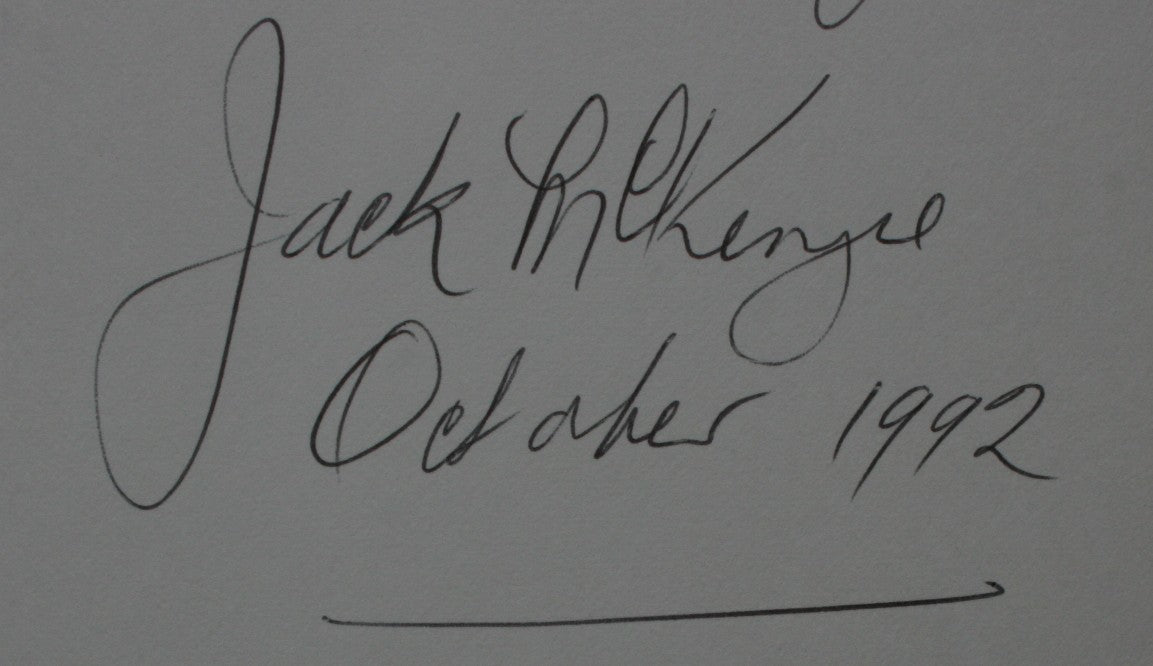 Jack McKenzie
October 1992